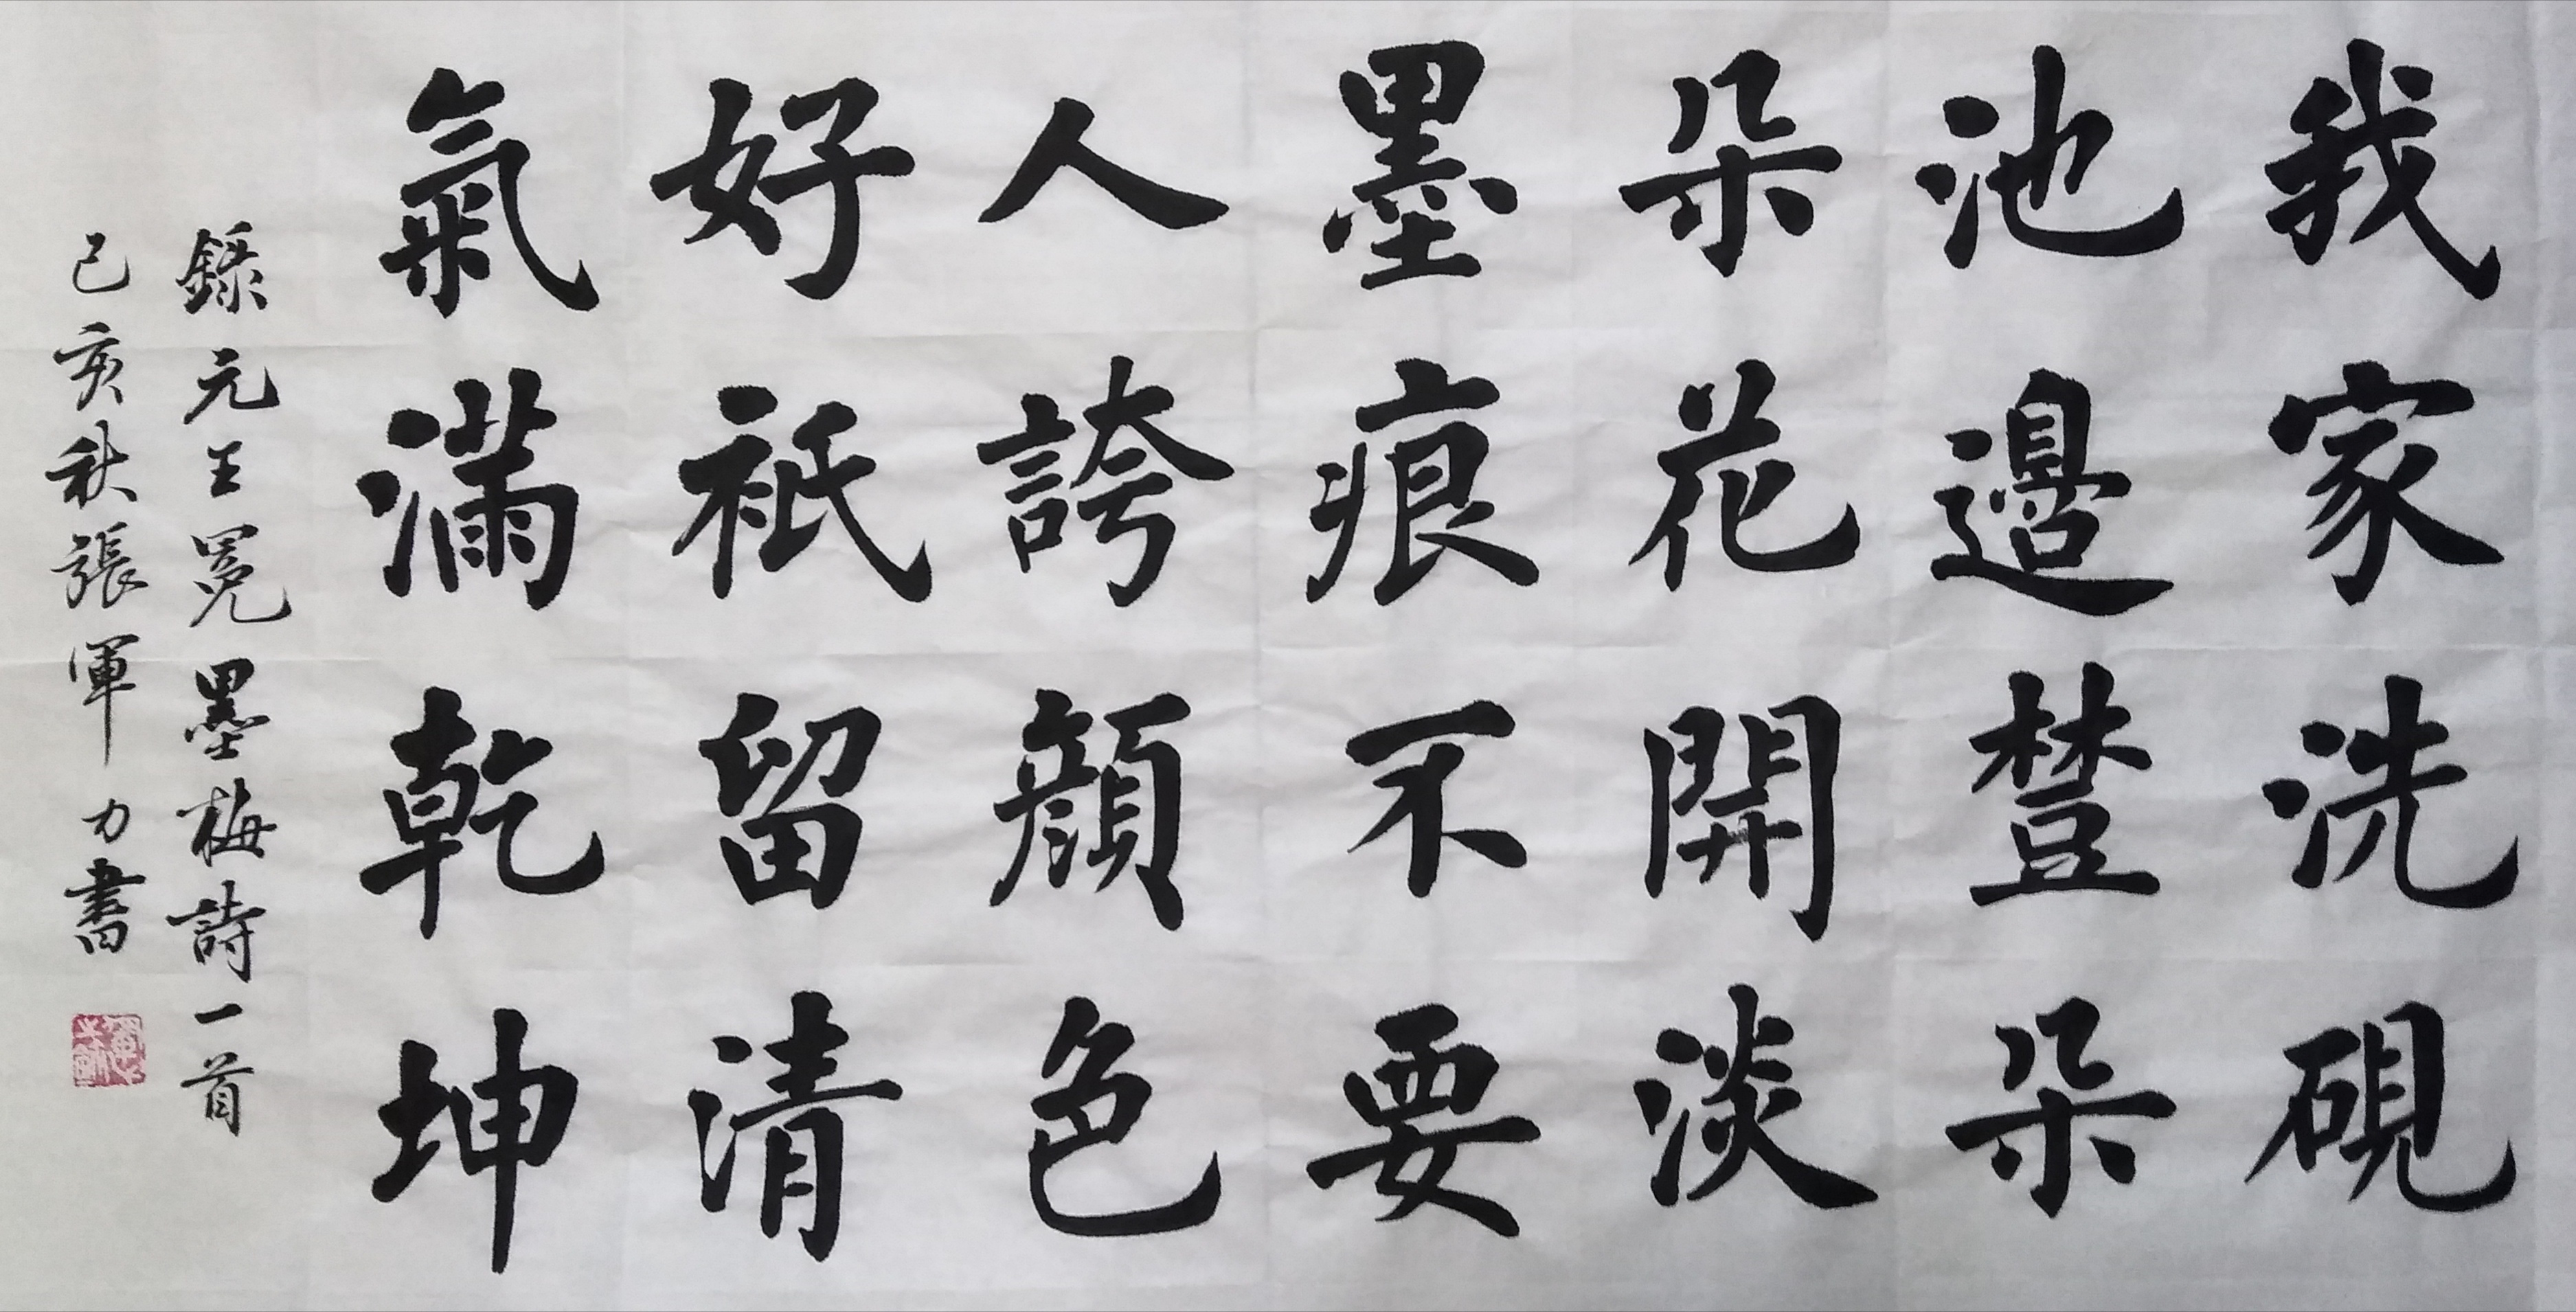 我家洗硯
池邊䒭朵
朵花開淡
墨痕不要
人誇顏色
好祇留清
氣滿乾坤
錄元王冕墨梅詩一首
己亥秋張軍力書